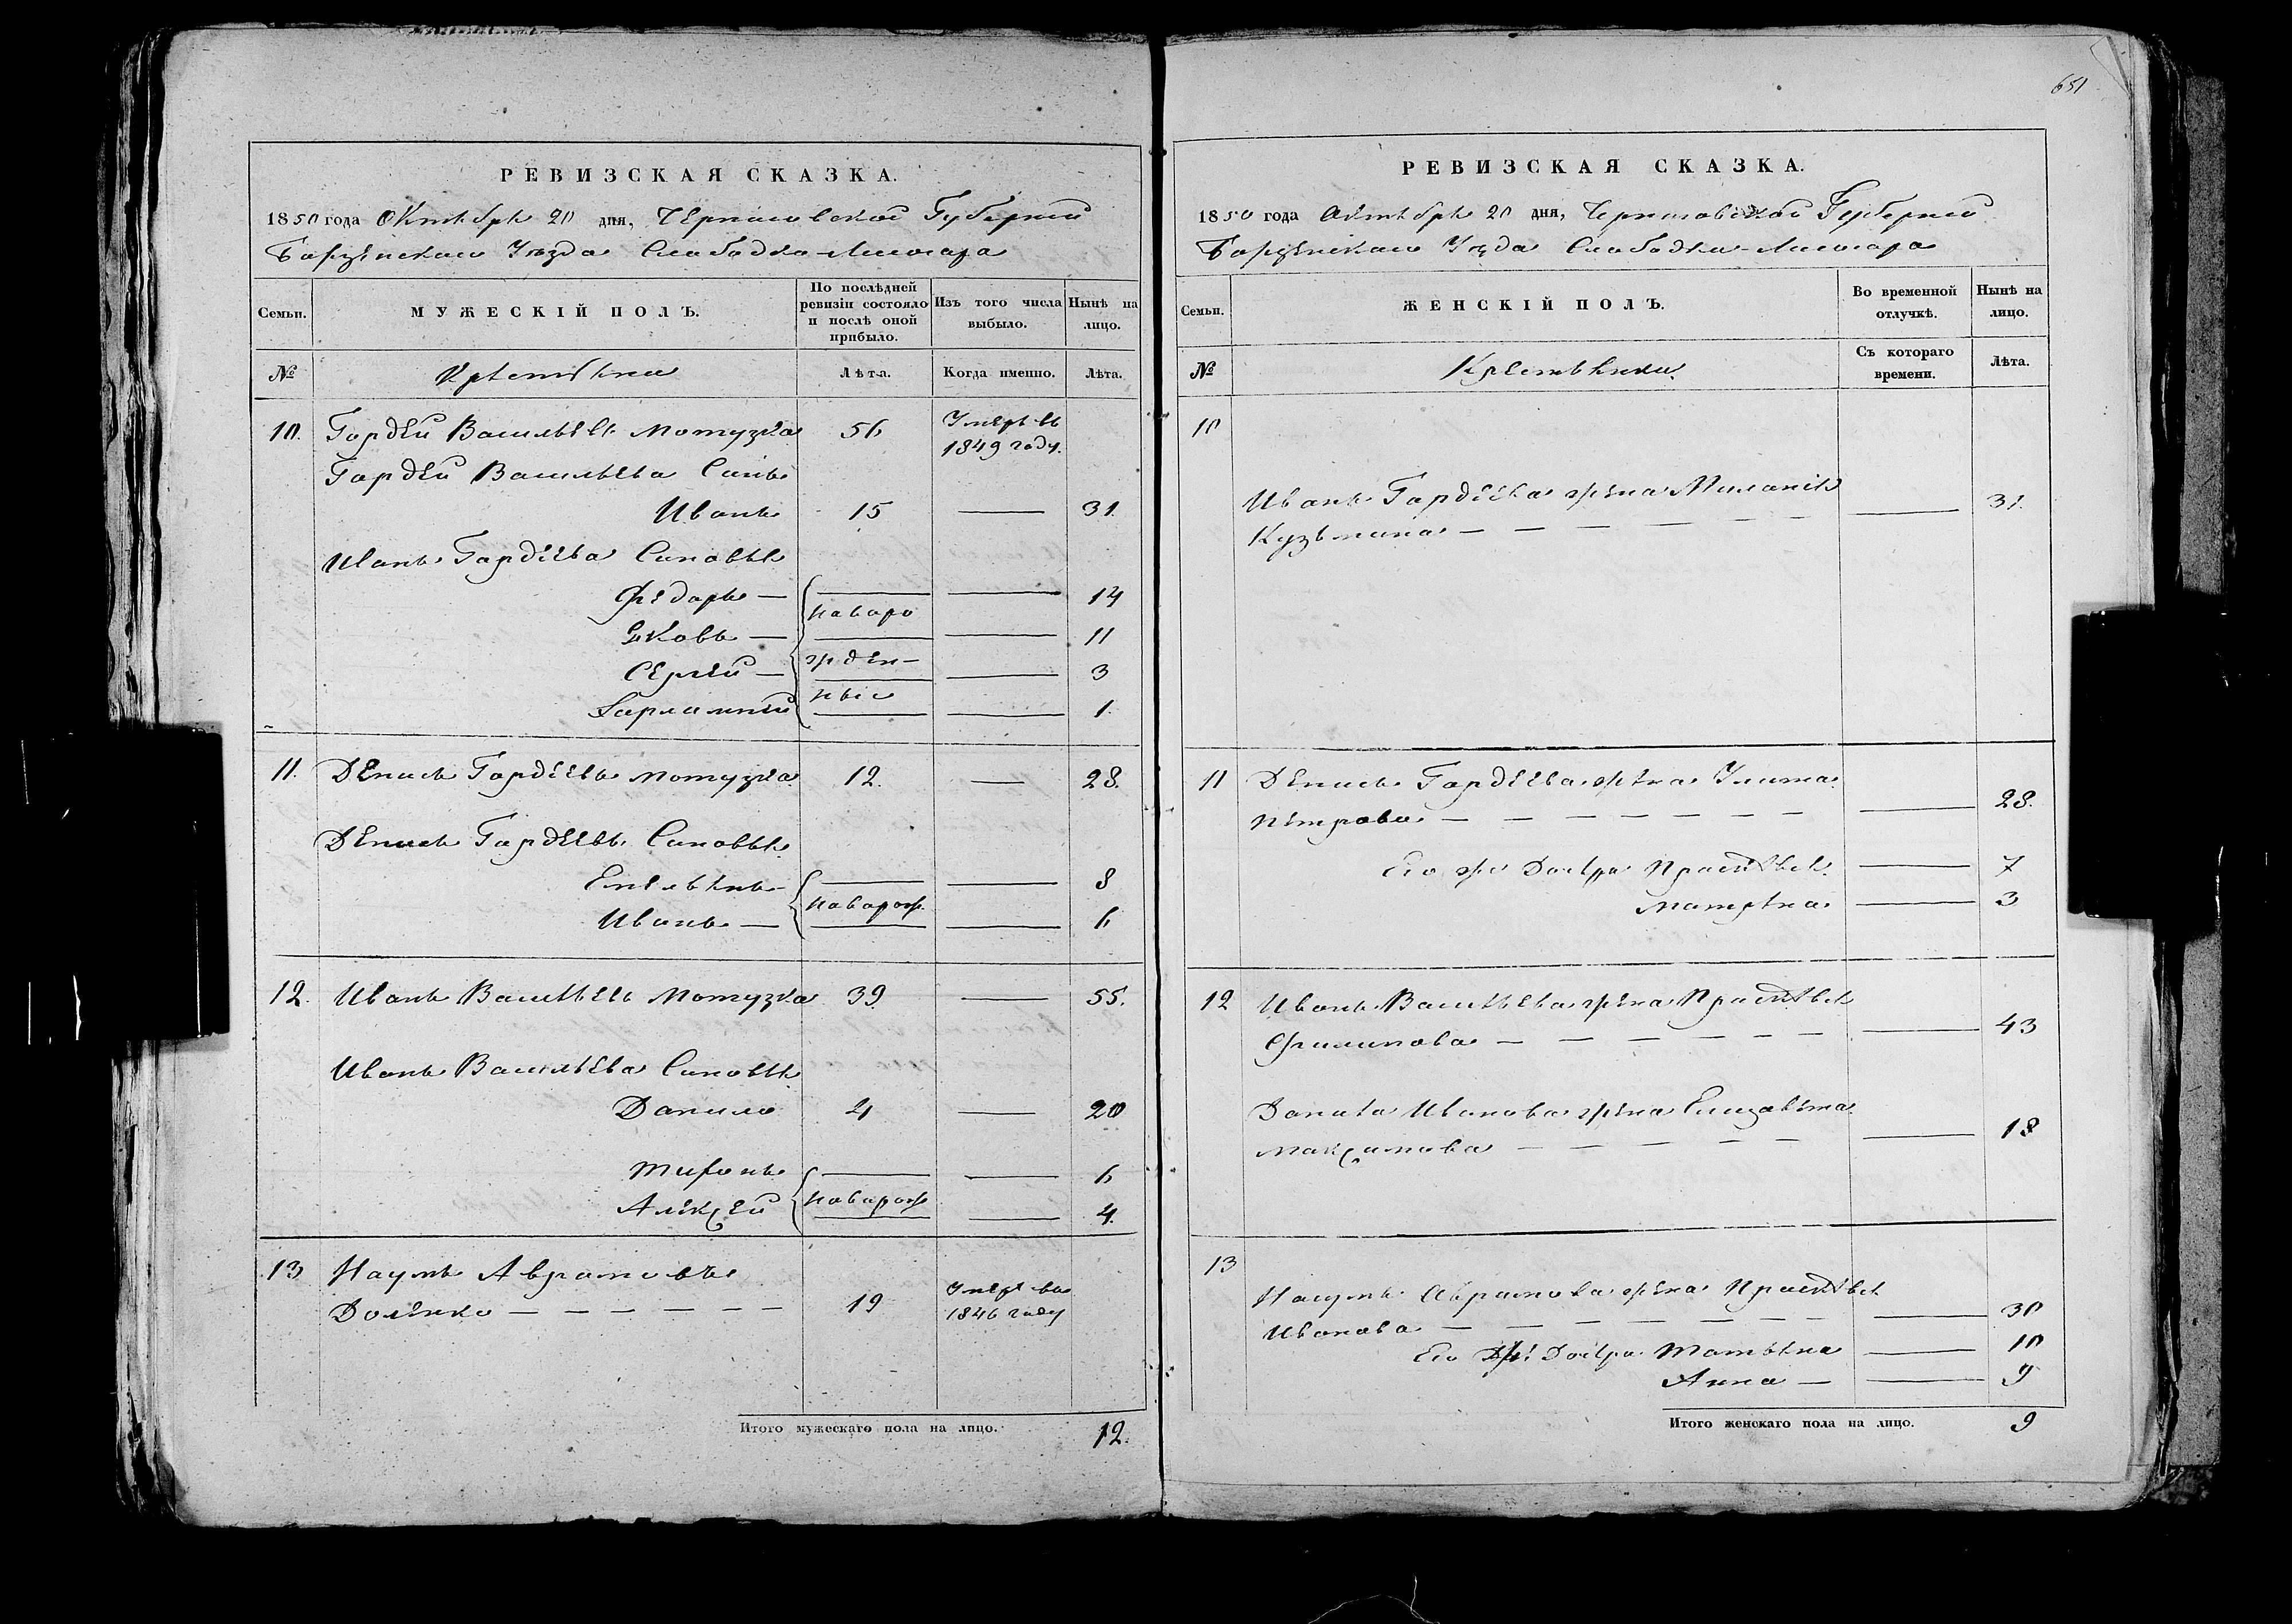 651
РЕВИЗСКАЯ СКАЗКА.
1850 года Октября 20 дня, Черниговской Губернии
Борзенскаго Уезда Слободка
Семьи.
МУЖЕСКІЙ ПОЛЪ.
По послѣдней ревизіи состояло и послѣ оной прибыло.
Изъ того числа выбыло.
Нынѣ на лицо.
№
Крестьяне
Лѣта.
Когда именно.
Лѣта.
10. Гордей Васильевъ Мотузка 56 Умеръ въ 1849 году.
Гордея Васильева Сынъ
Иванъ 15 — 31.
Ивана Гордеева Сыновья
Федоръ — — 14
Яковъ — новоро — 11
Сергей — жден- — 3
Харлампий ныи — 1.
11. Денисъ Гордеевъ Мотузка 12. — 28.
Дениса Гордеева Сыновья
Емельянъ — — 8
Иванъ — новорож. — 6
12. Иванъ Васильевъ Мотузка 39 — 55.
Ивана Васильева Сыновья
Данило 4 — 20
Тихонъ — — 6
Алексей новорож — 4.
13 Наумъ Аврамовъ
Доленко — — — — — — 19 Умеръ въ 1846 году
Итого мужескаго пола на лицо. 12.
РЕВИЗСКАЯ СКАЗКА.
1850 года Октября 20 дня, Черниговской Губернии
Борзенскаго Уезда Слободка
Семьи.
ЖЕНСКІЙ ПОЛЪ.
Во временной отлучкѣ.
Нынѣ на лицо.
№
Крестьянки.
Съ котораго времени.
Лѣта.
10
Ивана Гордеева жена Миланія
Кузьмина — — — — — — — 31.
11 Дениса Гордеева жена Улита
Петрова — — — — — — — — 28.
Его же Дочери Прасковья — 7
Матрена — 3
12 Ивана Васильева жена Прасковья
Филипова — — — — — — 43
Данила Иванова жена Елизавета
Максимова — — — — — — 18
13
Наума Аврамова жена Прасковья
Иванова — — — — — — — — 30
Его же Дочери Татьяна — 10
Анна — — 9
Итого женскаго пола на лицо. 9